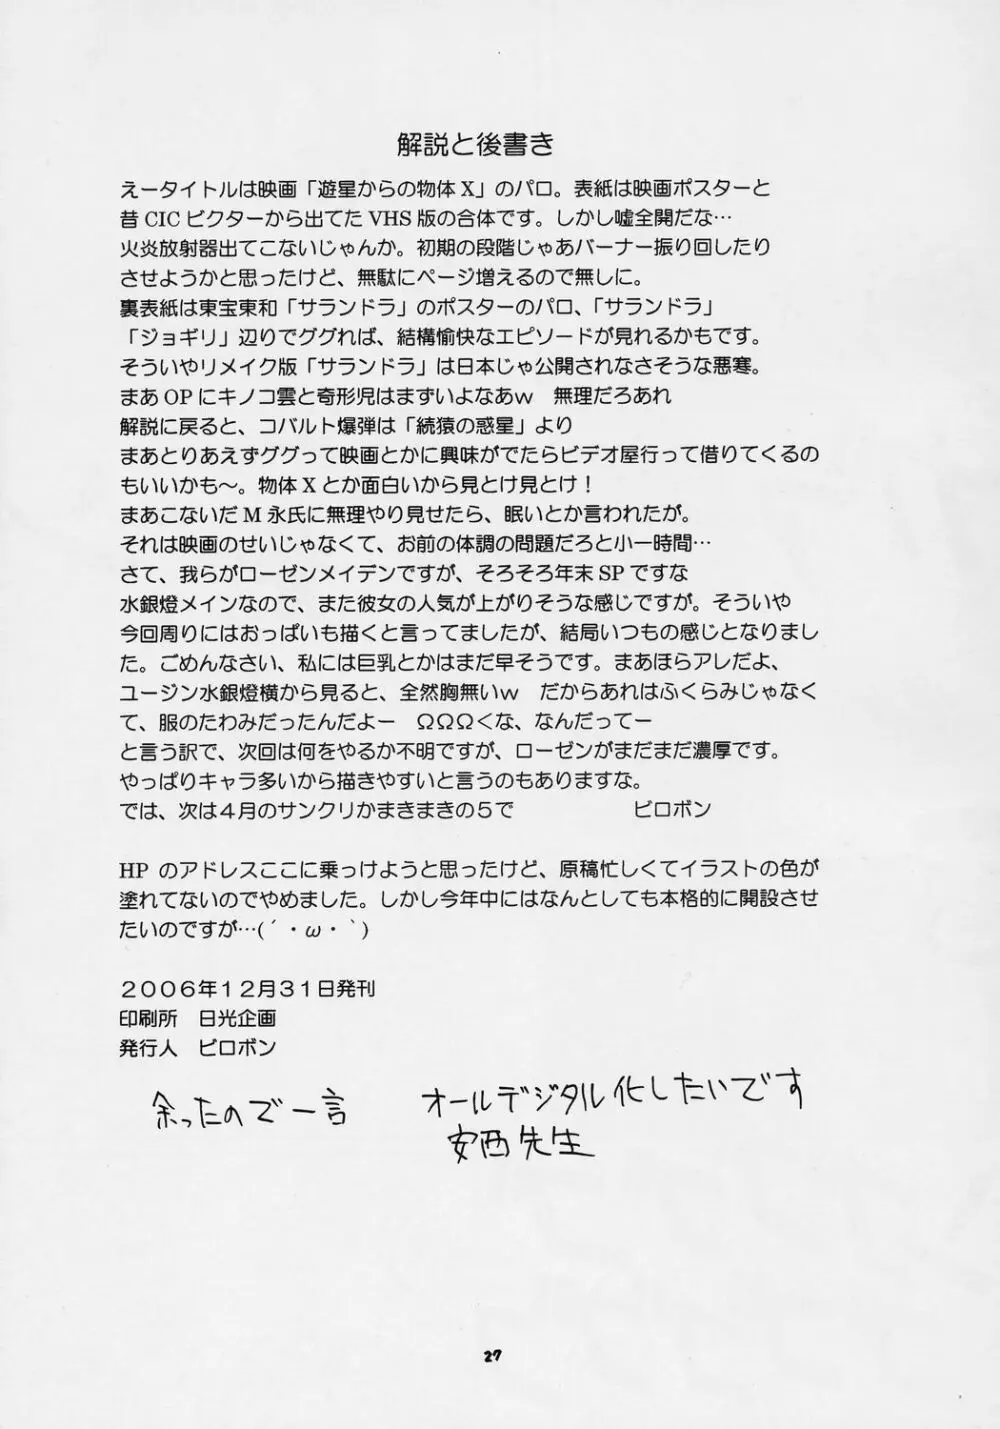 解説と後書き
えータイトルは映画「遊星からの物体X」のパロ。表紙は映画ポスターと
昔CICビクターから出てたVHS版の合体です。しかし嘘全開だな…
火炎放射器出てこないじゃんか。初期の段階じゃあバーナー振り回したり
させようかと思ったけど、無駄にページ増えるので無しに。
裏表紙は東宝東和「サランドラ」のポスターのパロ、「サランドラ」
「ジョギリ」辺りでググれば、結構愉快なエピソードが見れるかもです。
そういやリメイク版「サランドラ」は日本じゃ公開されなさそうな悪寒。
まあOPにキノコ雲と奇形児はまずいよなあｗ　無理だろあれ
解説に戻ると、コバルト爆弾は「続猿の惑星」より
まあとりあえずググって映画とかに興味がでたらビデオ屋行って借りてくるの
もいいかも～。物体Xとか面白いから見とけ見とけ！
まあこないだM永氏に無理やり見せたら、眠いとか言われたが。
それは映画のせいじゃなくて、お前の体調の問題だろと小一時間…
さて、我らがローゼンメイデンですが、そろそろ年末SPですな
水銀燈メインなので、また彼女の人気が上がりそうな感じですが。そういや
今回周りにはおっぱいも描くと言ってましたが、結局いつもの感じとなりまし
た。ごめんなさい、私には巨乳とかはまだ早そうです。まあほらアレだよ、
ユージン水銀燈横から見ると、全然胸無いｗ　だからあれはふくらみじゃなく
て、服のたわみだったんだよー　ΩΩΩ＜な、なんだってー
と言う訳で、次回は何をやるか不明ですが、ローゼンがまだまだ濃厚です。
やっぱりキャラ多いから描きやすいと言うのもありますな。
では、次は４月のサンクリかまきまきの５で　ビロボン
HPのアドレスここに乗っけようと思ったけど、原稿忙しくてイラストの色が
塗れてないのでやめました。しかし今年中にはなんとしても本格的に開設させ
たいのですが…(´・ω・`)
２００６年１２月３１日発刊
印刷所　日光企画
発行人　ビロボン
余ったので一言　オールデジタル化したいです
安西先生
27